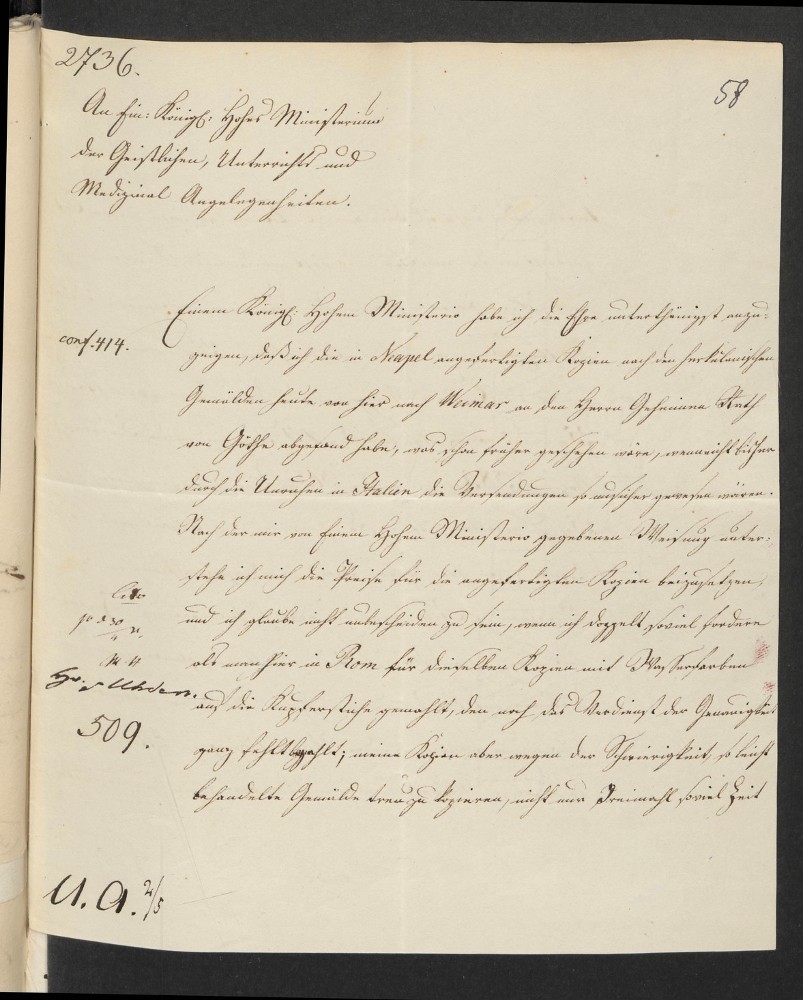 2736.
58
An Ein: Königl: Hohes Ministerium
der Geistlichen, Unterrichts und
Medizinal Angelegenheiten.
Einem Königl: Hohem Ministerio habe ich die Ehre unterthänigst anzu:
conf. 414.
zeigen, daß ich die in Neapel angefertigten Kopien nach den herkulanischen
Gemälden heute von hier nach Weimar an den Herrn Geheimen Rath
von Göthe abgesand habe, was schon früher geschehen wäre, wenn nicht bisher
durch die Unruhen in Italien die Versendungen so unsicher gewesen wären.
Nach der mir von Einem Hohem Ministerio gegebenen Weisung unter:
stehe ich mich die Preise für die angefertigten Kopien beizusetzen,
Cito
und ich glaube nicht unbescheiden zu sein, wenn ich doppelt soviel fordere
als man hier in Rom für dieselben Kopien mit Wasserfarben
H. Uhden.
auf die Kupferstiche gemahlt, den noch das Verdienst der Genauigkeit
509.
ganz fehlt bezahlt; meine Kopien aber wegen der Schwierigkeit, so leicht
behandelte Gemälde treu zu kopieren, nicht nur Dreimahl soviel Zeit
U. A. 2/5